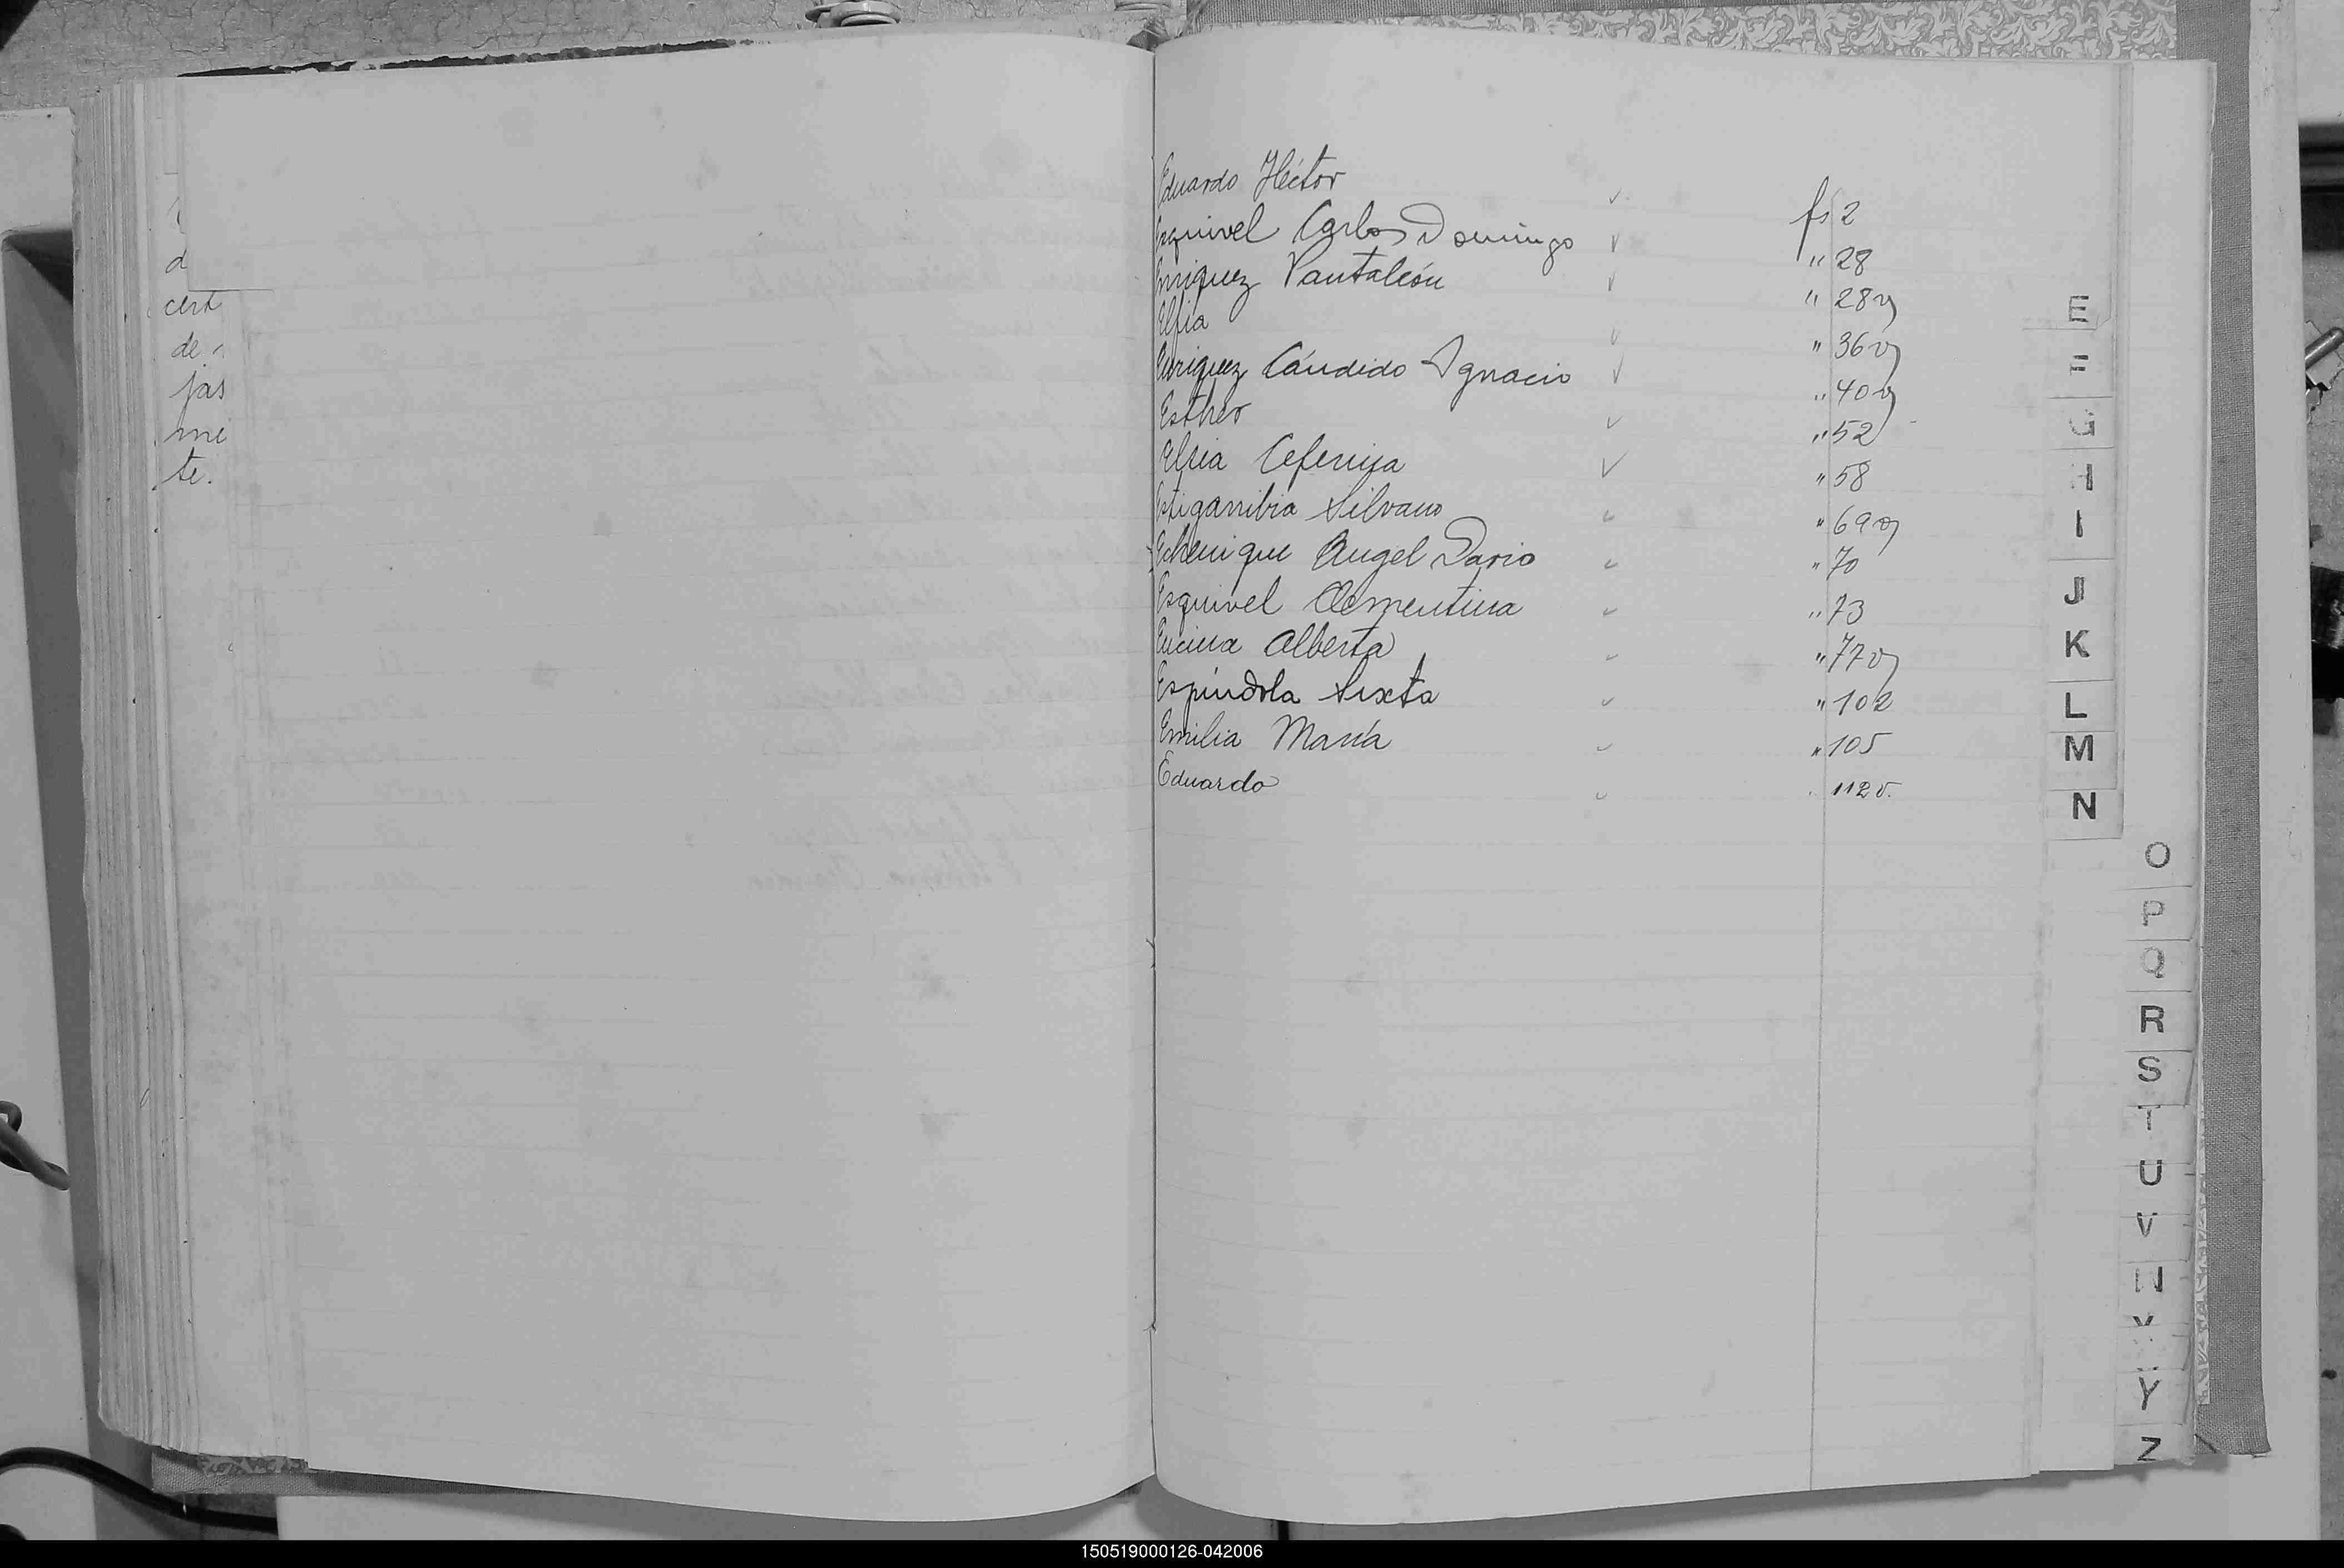 d
cert
de
jas
mi
te.
Eduardo Héctor fs 2
Esquivel Carlos Domingo " 28
Enriquez Pantaleón " 28v
Elsia " 36v
Enriquez Cándido Ignacio " 40v
Esther " 52
Elsia Ceferina " 58
Estigarribia Silvano " 69v
Echenique Angel Dario " 70
Esquivel Clementina " 73
Encina Alberta " 77v
Espíndola Sixta " 102
Emilia María " 105
Eduardo " 112v.
E
F
G
H
I
J
K
L
M
N
O
P
Q
R
S
T
U
V
W
X
Y
Z
150519000126-042006